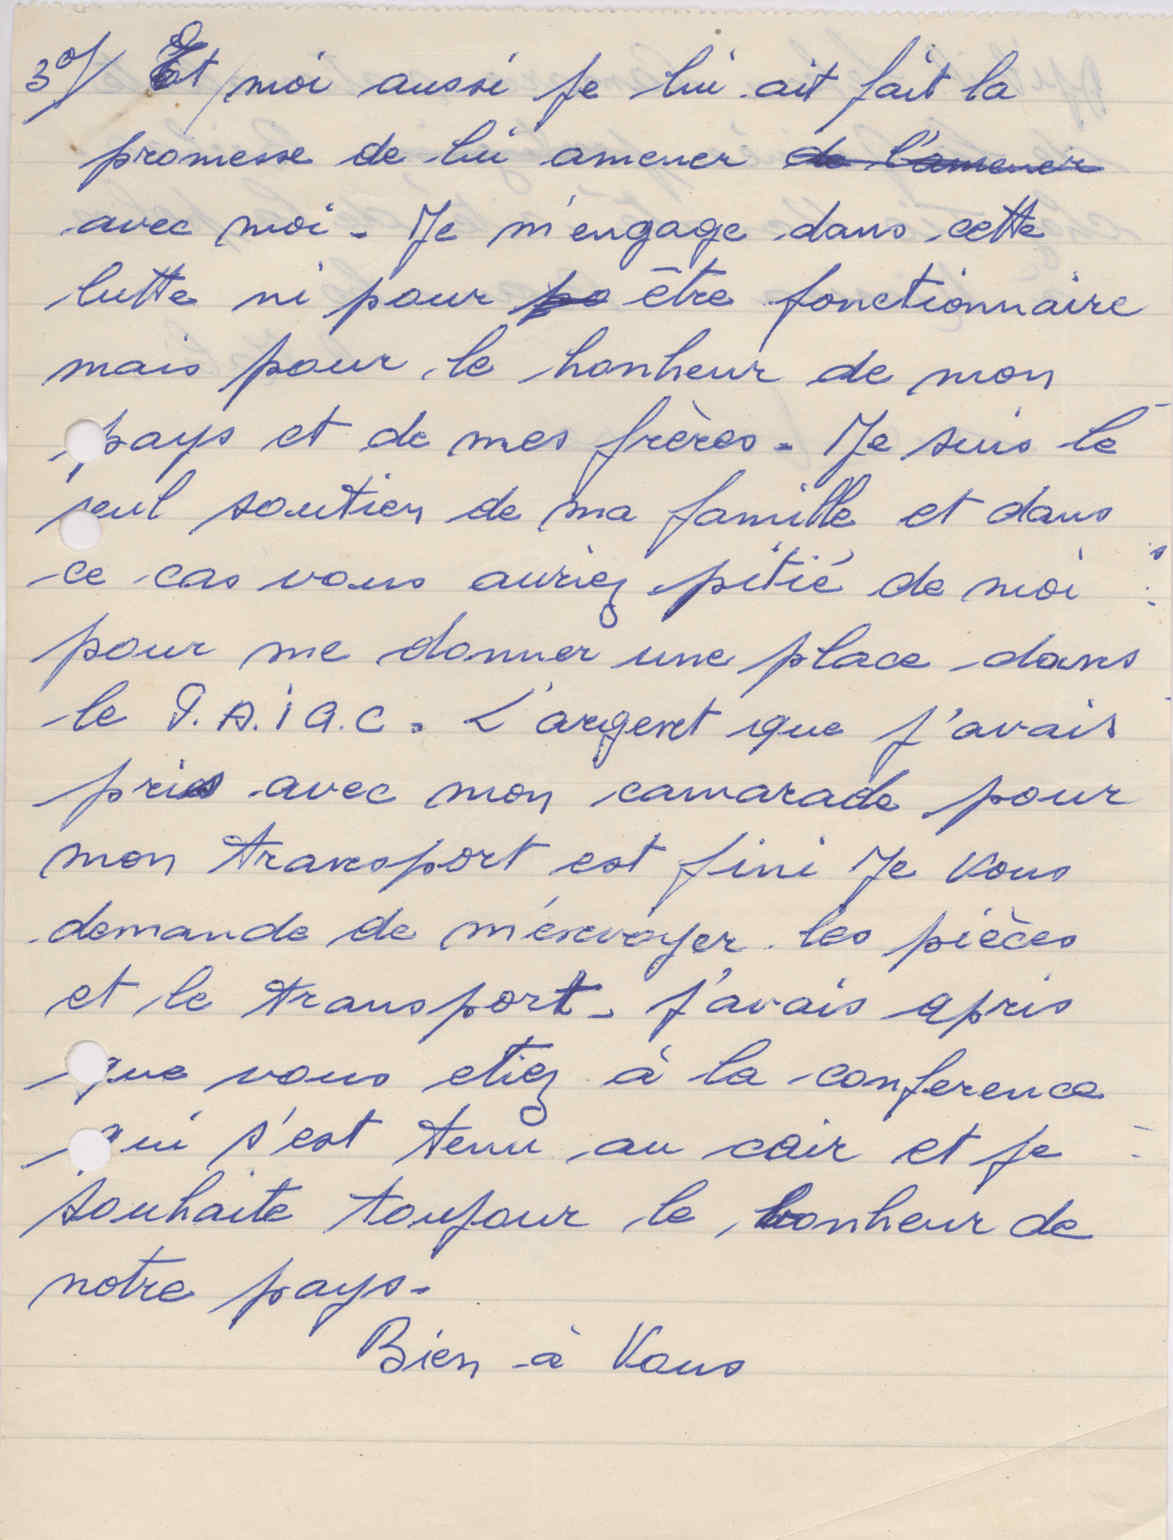 3°/ Et moi aussi je lui ait fait la
promesse de lui amener de l'amener
avec moi. Je m'engage dans cette
lutte ni pour po être fonctionnaire
mais pour le bonheur de mon
pays et de mes frères. Je suis le
seul soutien de ma famille et dans
ce cas vous auriez pitié de moi
pour me donner une place dans
le P.A.I G.C. L'argent que j'avais
pris avec mon camarade pour
mon transport est fini Je vous
demande de m'envoyer les pièces
et le transport. J'avais apris
que vous etiez à la conference
qui s'est tenu au cair et je
souhaite toujour le bonheur de
notre pays.
Bien à Vous